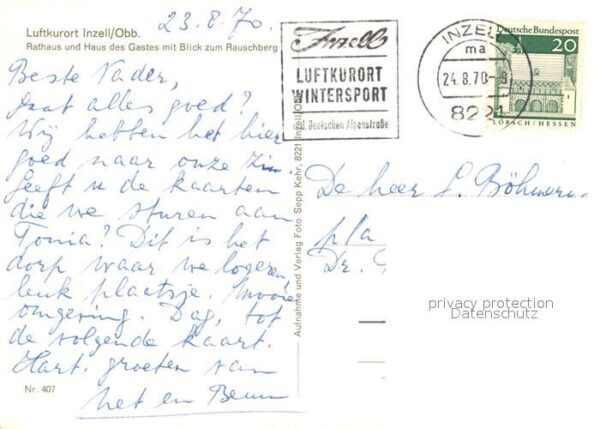 23.8.70.
Luftkurort Inzell/Obb.
Rathaus und Haus des Gastes mit Blick zum Rauschberg
Beste Vader,
gaat alles goed?
Wij hebben het hier
goed naar onze zin.
Heeft u de kaarten
die we sturen aan
Tonia? Dit is het
dorp waar we logeren,
leuk plaatsje. Mooie
omgeving. Dag, tot
de volgende kaart.
Hart. groeten van
en
Nr. 407
Aufnahme und Verlag Foto Sepp Kehr, 8221 Inzell/Obb
Inzell
LUFTKURORT
WINTERSPORT
Deutschen Alpenstraße
INZELL
ma
24.8.70-9
8221
Deutsche Bundespost
20
LORSCH/HESSEN
De heer L.
p/a
Dr.
privacy protection
Datenschutz